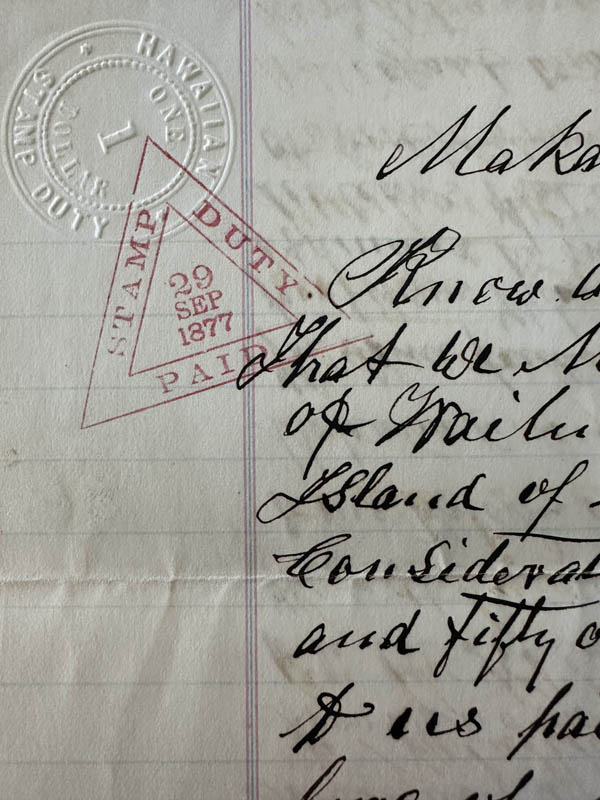 HAWAIIAN
STAMP DUTY
ONE
1
DOLLAR
STAMP DUTY PAID
29
SEP
1877
Maka
Know
That we M
of Wailu
Island of
Considerat
and fifty o
to us pai